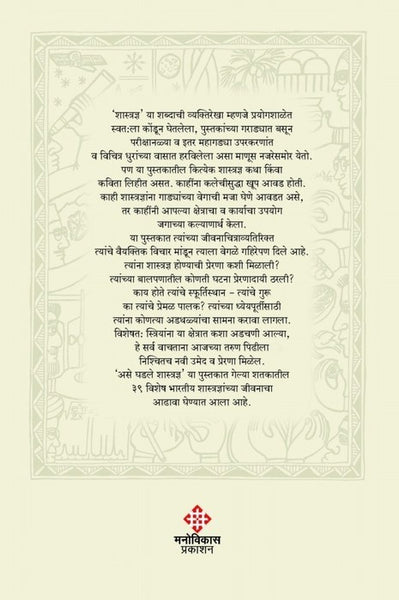 'शास्त्रज्ञ' या शब्दाची व्यक्तिरेखा म्हणजे प्रयोगशाळेत
स्वत:ला कोंडून घेतलेला, पुस्तकांच्या गराड्यात बसून
परीक्षानळ्या व इतर महागड्या उपरकणांत
व विचित्र धुरांच्या वासात हरविलेला असा माणूस नजरेसमोर येतो.
पण या पुस्तकातील कित्येक शास्त्रज्ञ कथा किंवा
कविता लिहीत असत. काहींना कलेचीसुद्धा खूप आवड होती.
काही शास्त्रज्ञांना गाड्यांच्या वेगाची मजा घेणे आवडत असे,
तर काहींनी आपल्या क्षेत्राचा व कार्याचा उपयोग
जगाच्या कल्याणार्थ केला.
या पुस्तकात त्यांच्या जीवनाचित्राव्यतिरिक्त
त्यांचे वैयक्तिक विचार मांडून त्याला वेगळे गहिरेपण दिले आहे.
त्यांना शास्त्रज्ञ होण्याची प्रेरणा कशी मिळाली?
त्यांच्या बालपणातील कोणती घटना प्रेरणादायी ठरली?
काय होते त्यांचे स्फूर्तिस्थान – त्यांचे गुरू
का त्यांचे प्रेमळ पालक? त्यांच्या ध्येयपूर्तीसाठी
त्यांना कोणत्या अडथळ्यांचा सामना करावा लागला.
विशेषत: स्त्रियांना या क्षेत्रात कशा अडचणी आल्या,
हे सर्व वाचताना आजच्या तरुण पिढीला
निश्चितच नवी उमेद व प्रेरणा मिळेल.
'असे घडले शास्त्रज्ञ' या पुस्तकात गेल्या शतकातील
३९ विशेष भारतीय शास्त्रज्ञांच्या जीवनाचा
आढावा घेण्यात आला आहे.
मनोविकास
प्रकाशन